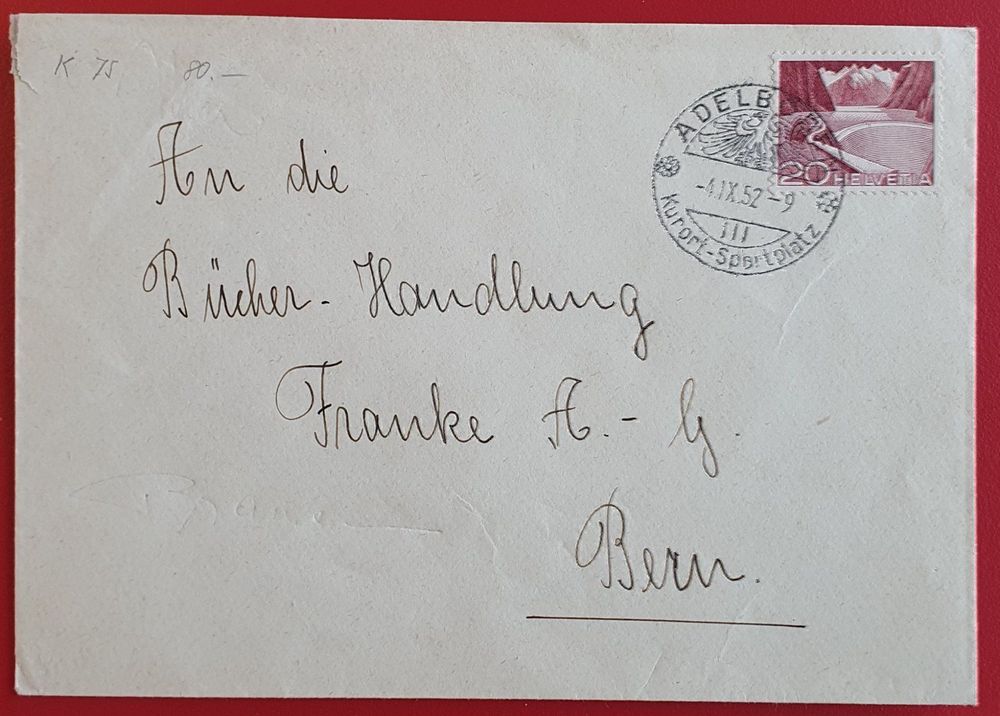 K 75 80.—
ADELBODEN
-4.IX.52-9
III
Kurort-Sportplatz
20 HELVETIA
An die
Bücher-Handlung
Franke A.-G.
Bern.